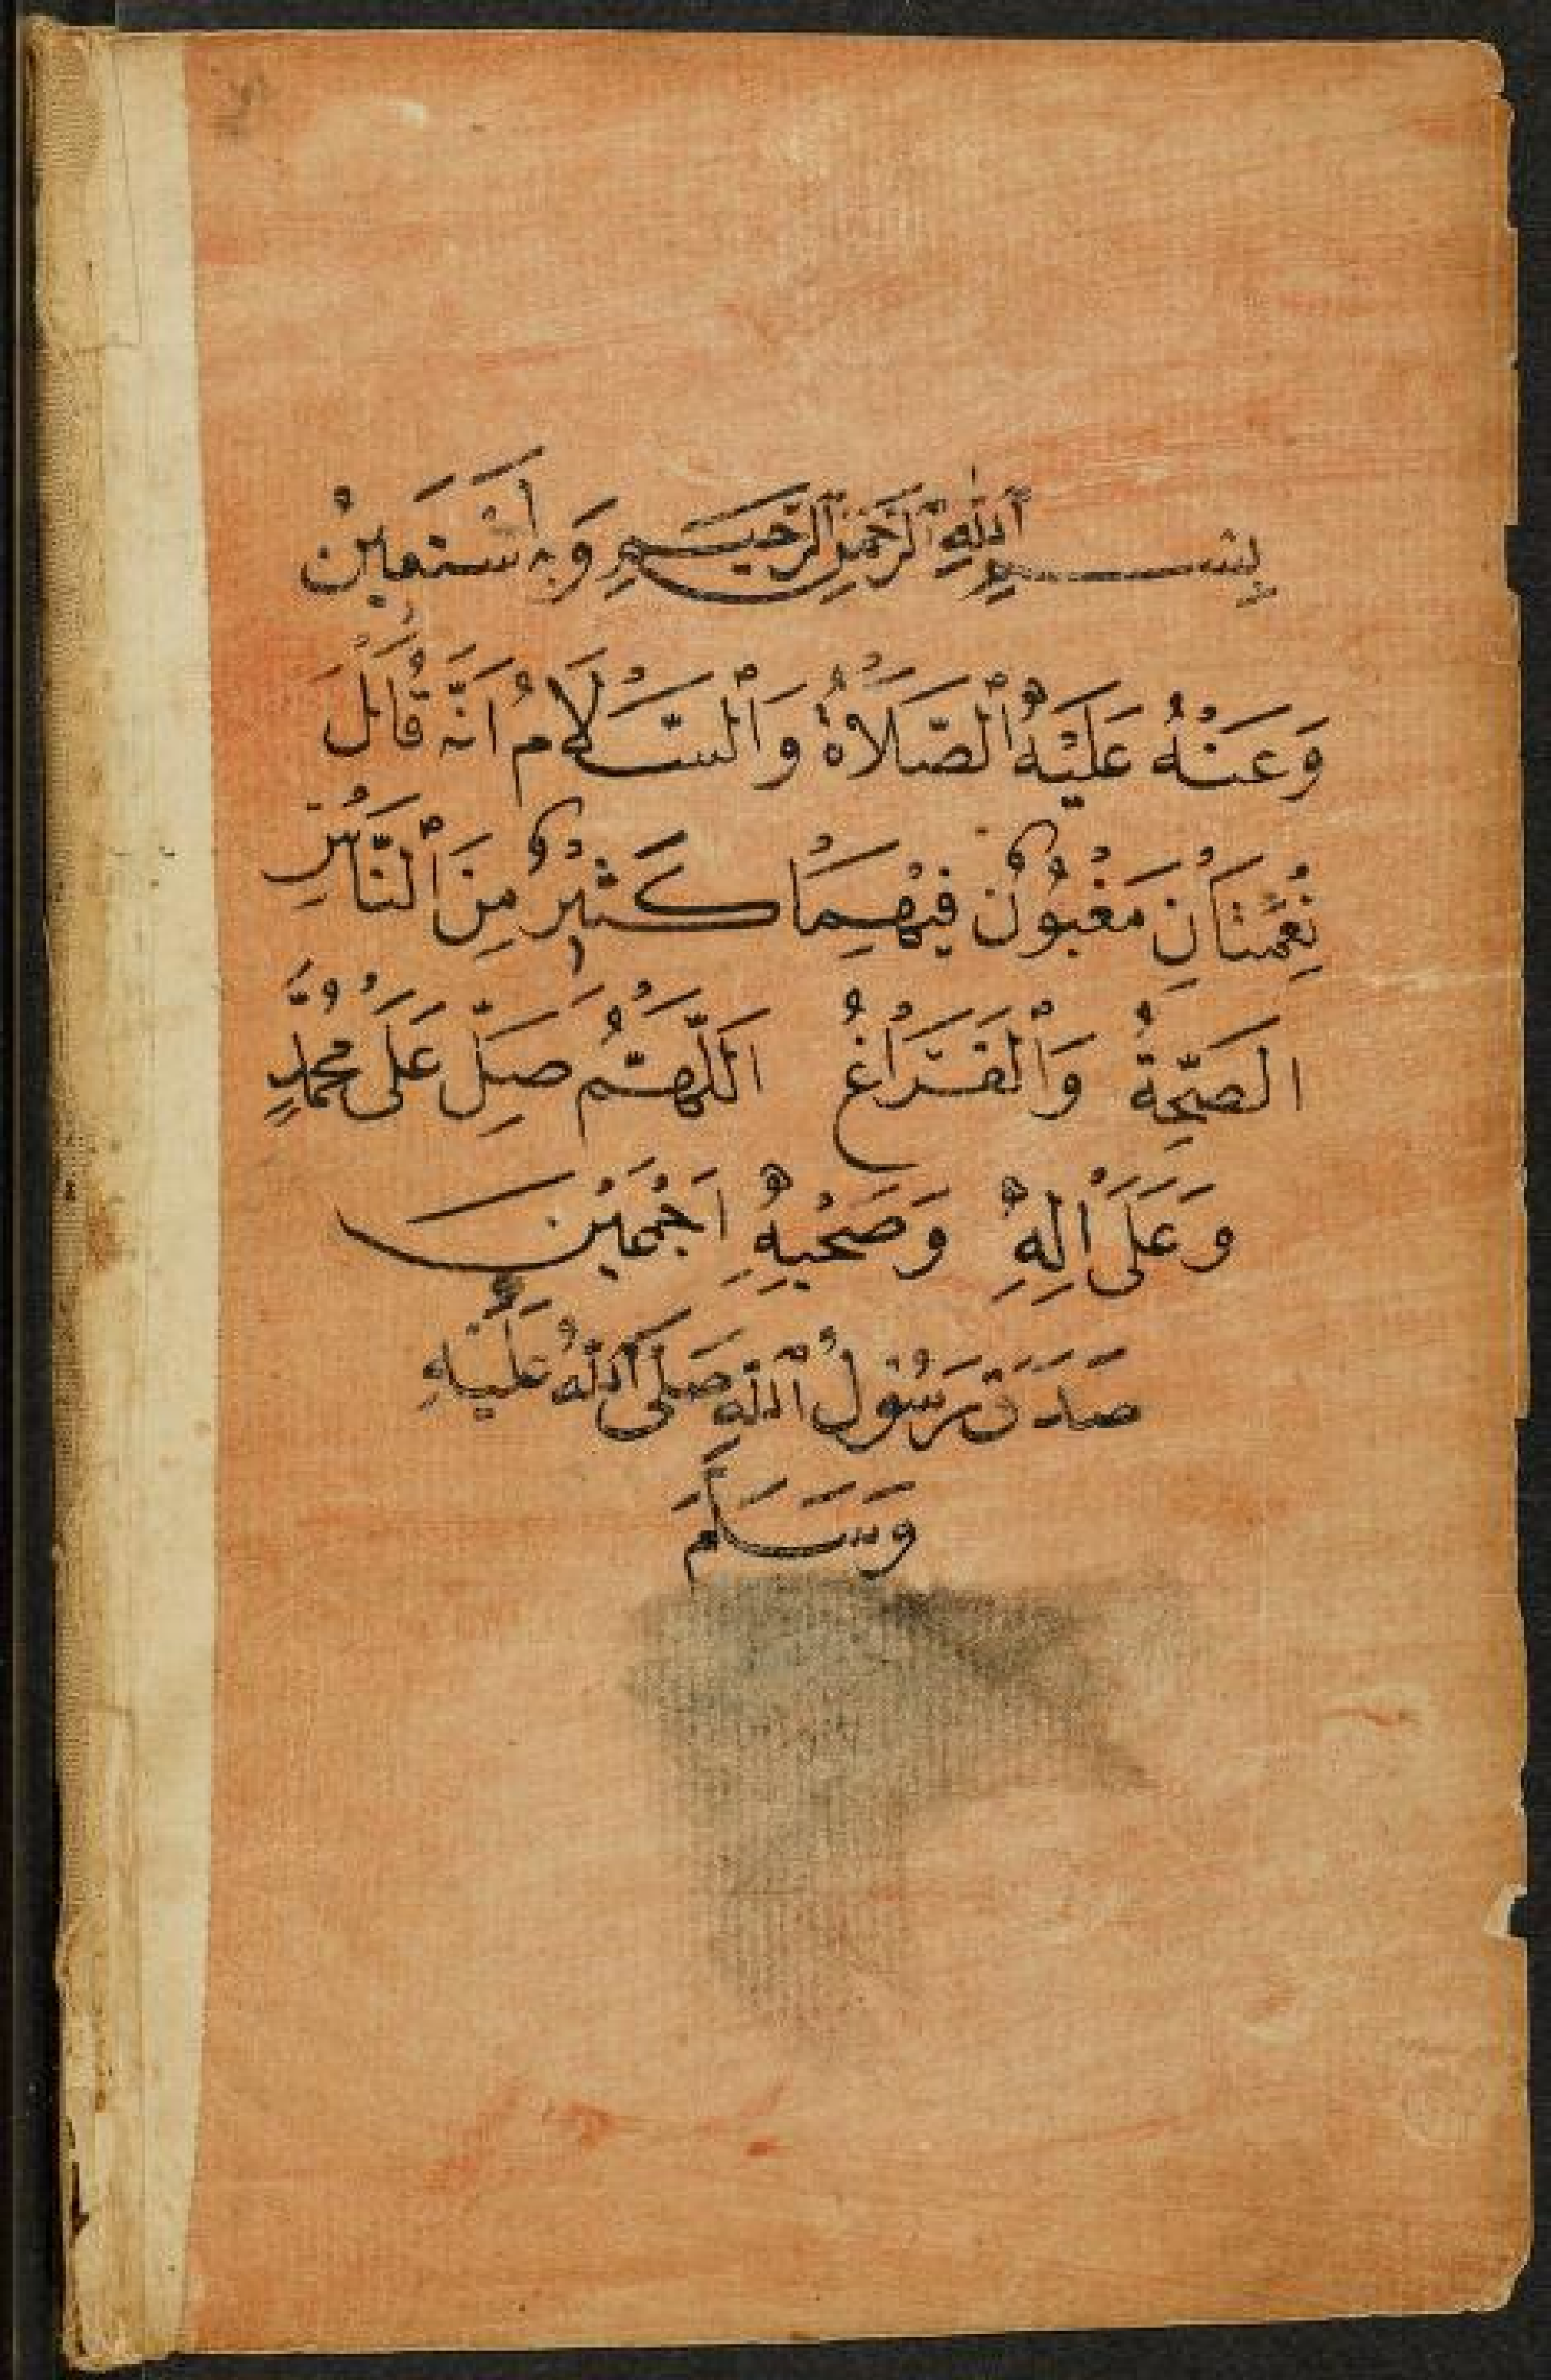 بِسْمِ ٱللَّهِ ٱلرَّحْمَنِ ٱلرَّحِيمِ وَبِهِ أَسْتَعِينْ
وَعَنْهُ عَلَيْهِ ٱلْصَّلَاةُ وَٱلْسَّلَامُ اَنَّهُ قَالَ
نِعْمَتَانِ مَغْبُونٌ فِيْهِمَا كَثِيْرٌ مِنَ ٱلْنَّاسِ
الصِّحَّةُ وَٱلْفَرَاغُ اَللَّهُمَّ صَلِّ عَلَى مُحَمَّدٍ
وَعَلَى اَلِهِ وَصَحْبِهِ اَجْمَعِيْنَ
صَدَقَ رَسُوْلُ ٱللَّهِ صَلَّى ٱللَّهُ عَلَيْهِ
وَسَلَّمَ